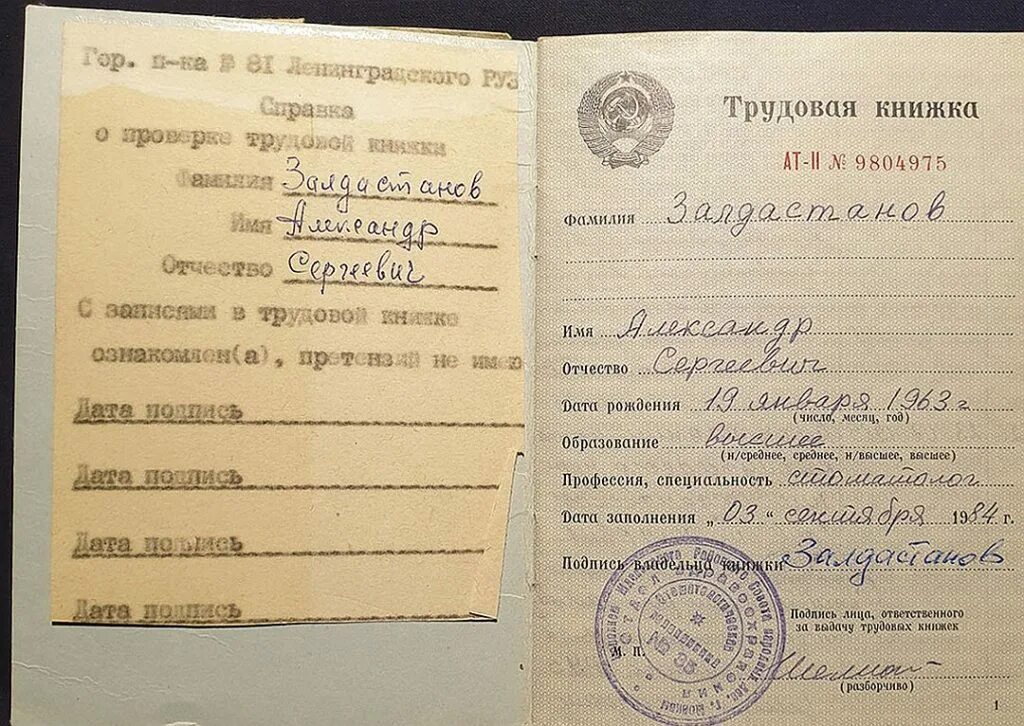 Гор. п-ка № 81 Ленинградского РУЗ
Справка
о проверке трудовой книжки
Фамилия Залдастанов
Имя Александр
Отчество Сергеевич
С записями в трудовой книжке
ознакомлен(а), претензий не имею
Дата подпись
Дата подпись
Дата подпись
Дата подпись
Трудовая книжка
АТ-II № 9804975
Фамилия Залдастанов
Имя Александр
Отчество Сергеевич
Дата рождения 19 января 1963 г
(число, месяц, год)
Образование высшее
(н/среднее, среднее, н/высшее, высшее)
Профессия, специальность стоматолог
Дата заполнения „03“ сентября 1984 г.
Подпись владельца книжки Залдастанов
Подпись лица, ответственного
за выдачу трудовых книжек
М. П.
(разборчиво)
1